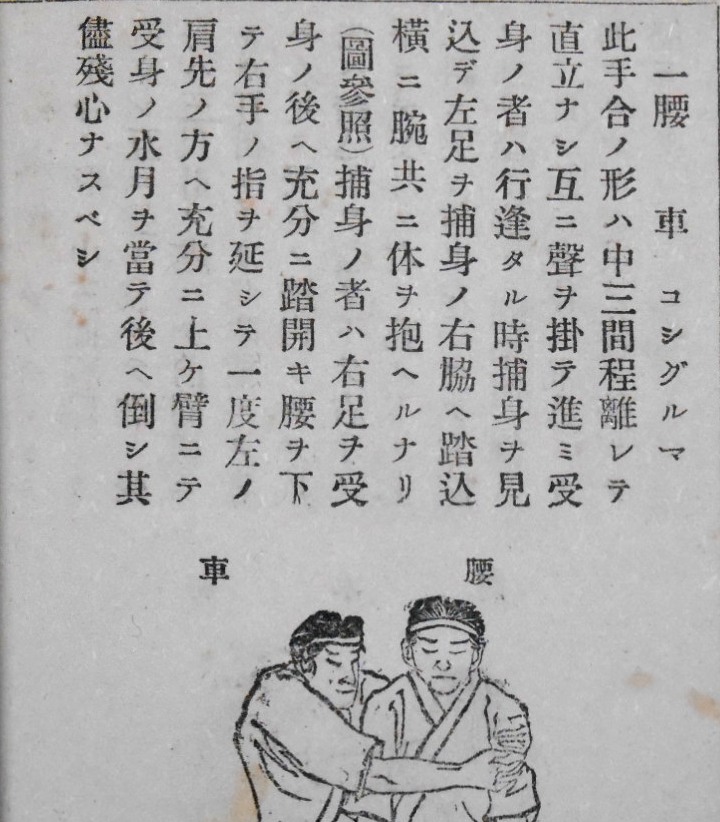 一腰　車　コシグルマ
此手合ノ形ハ中三間程離レテ
直立ナシ互ニ聲ヲ掛テ進ミ受
身ノ者ハ行逢タル時捕身ヲ見
込デ左足ヲ捕身ノ右脇ヘ踏込
横ニ腕共ニ体ヲ抱ヘルナリ
(圖參照)捕身ノ者ハ右足ヲ受
身ノ後ヘ充分ニ踏開キ腰ヲ下
テ右手ノ指ヲ延シテ一度左ノ
肩先ノ方ヘ充分ニ上ケ臂ニテ
受身ノ水月ヲ當テ後ヘ倒シ其
儘殘心ナスベシ
腰　車